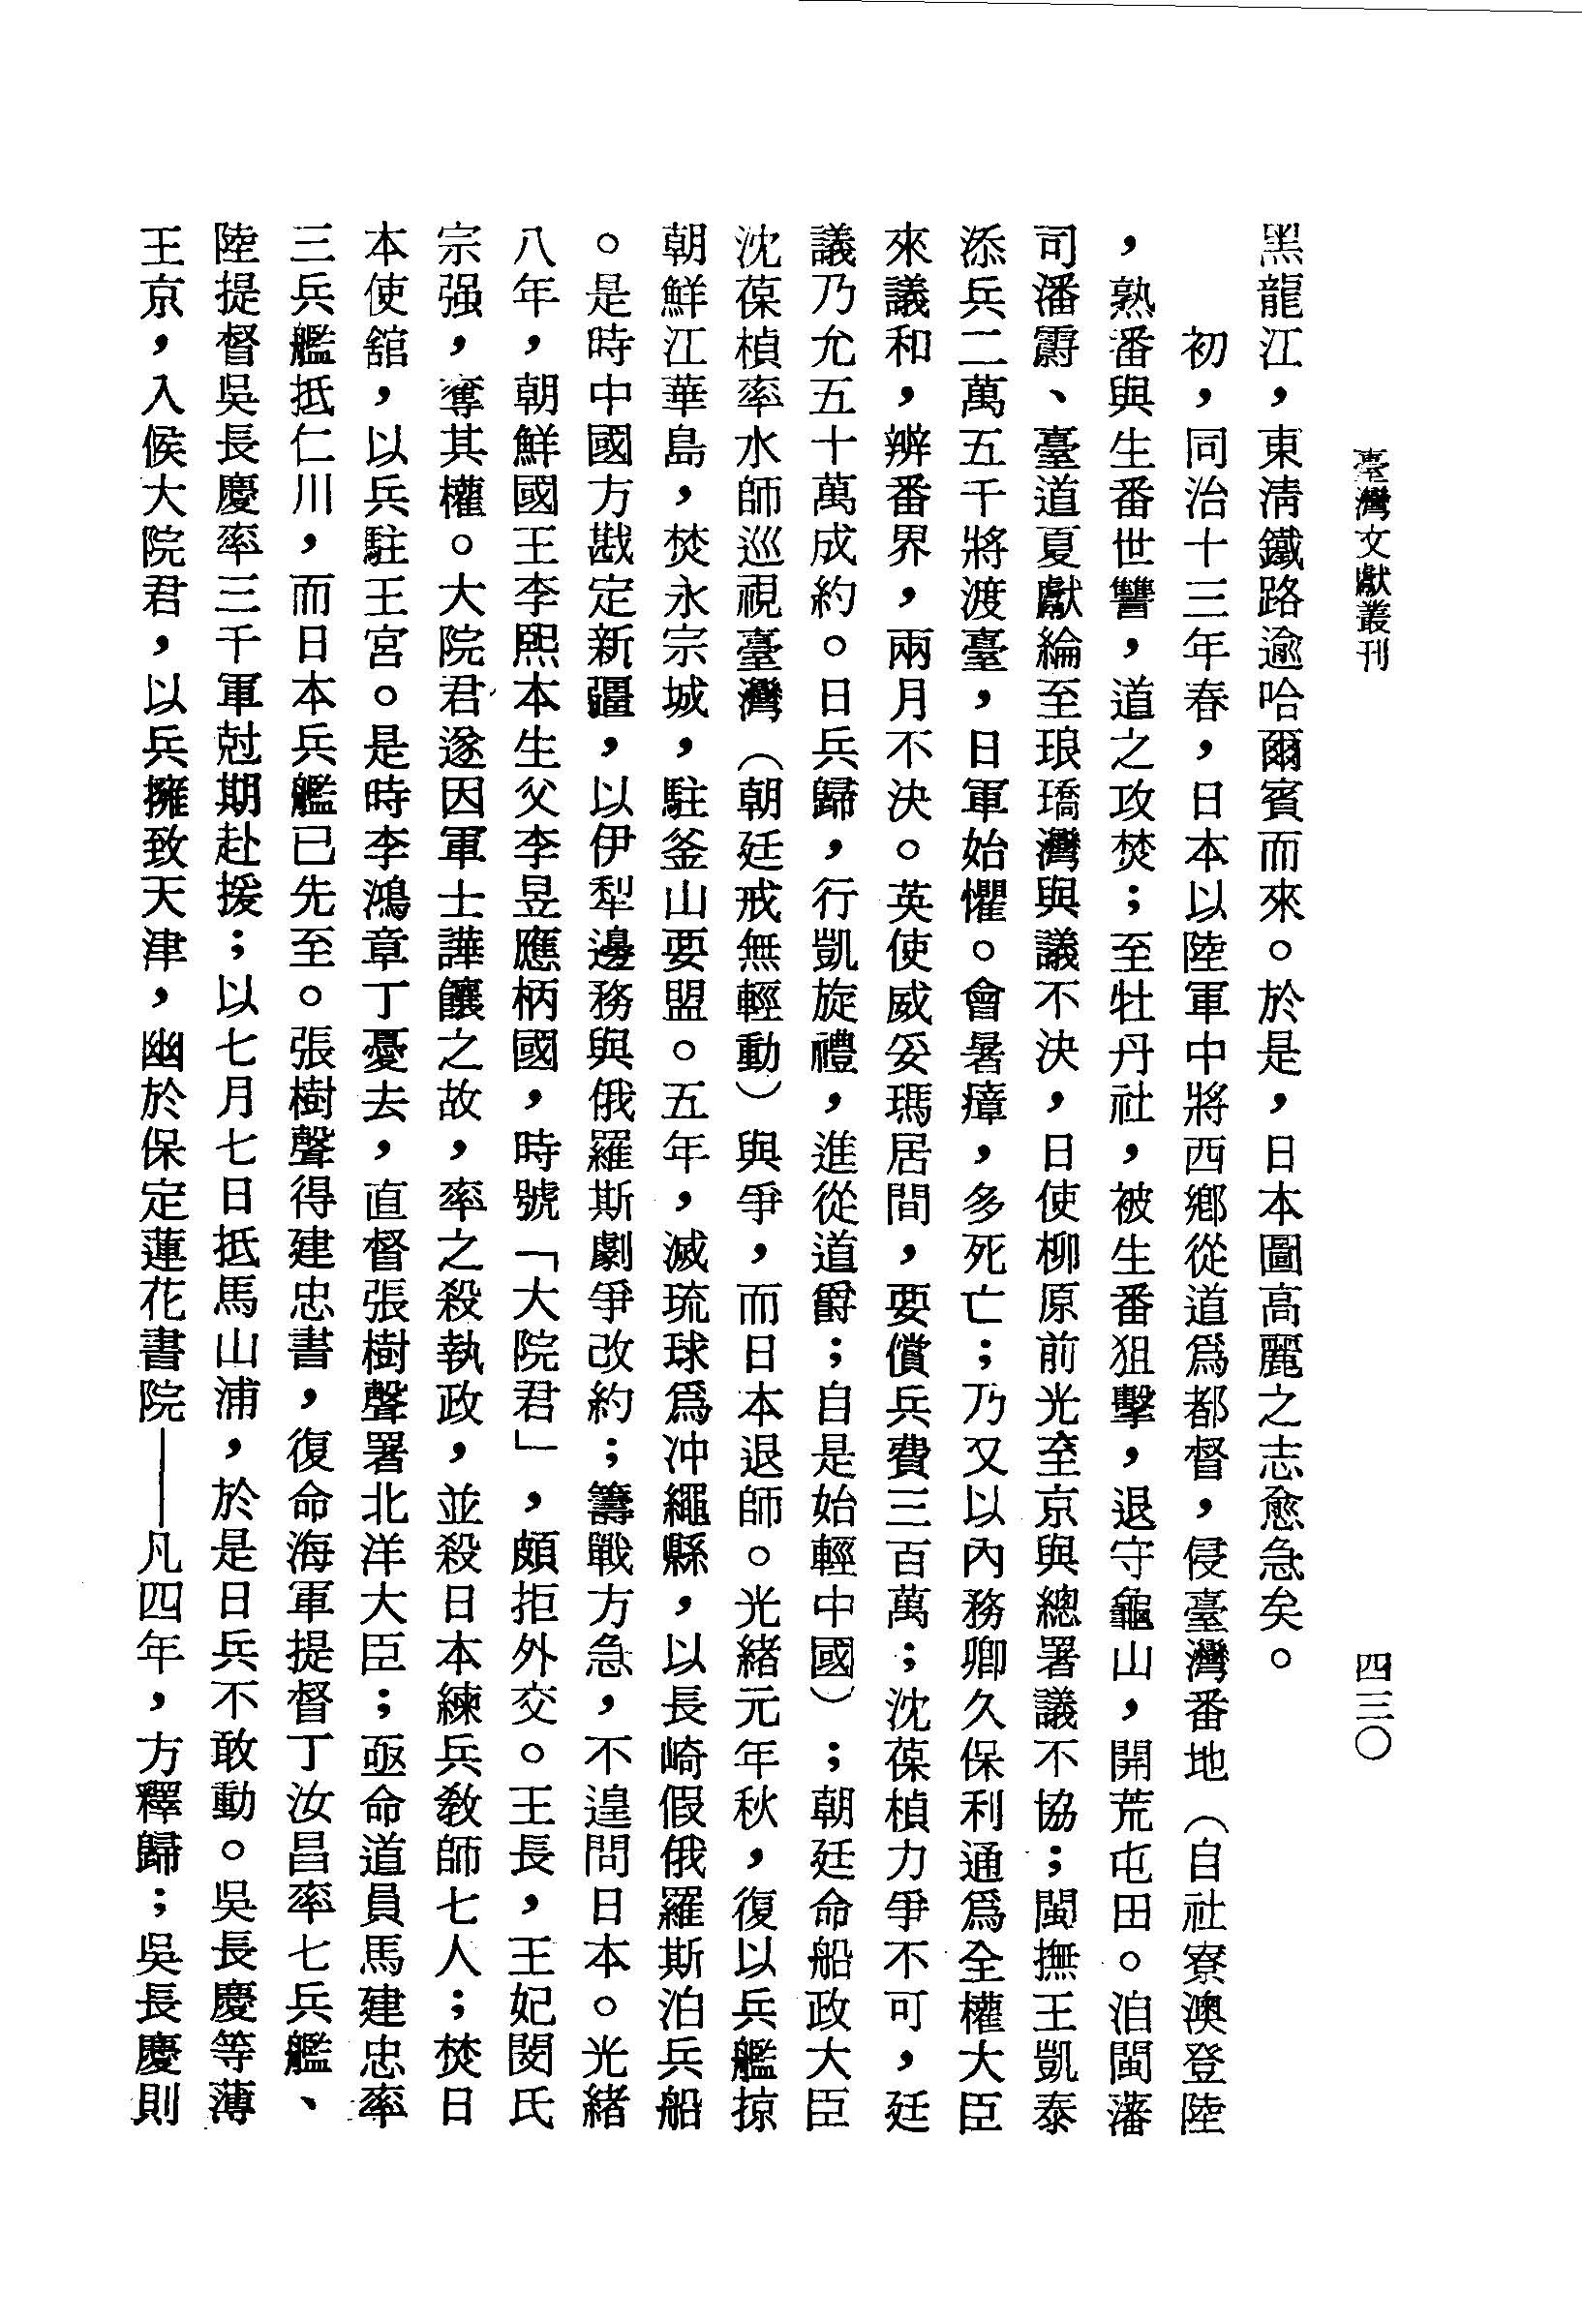 臺灣文獻叢刊
四三〇
黑龍江，東淸鐵路逾哈爾賓而來。於是，日本圖高麗之志愈急矣。
初，同治十三年春，日本以陸軍中將西鄉從道爲都督，侵臺灣番地（自社寮澳登陸
，熟番與生番世讐，道之攻焚；至牡丹社，被生番狙擊，退守龜山，開荒屯田。洎閩藩
司潘霨、臺道夏獻綸至琅璚灣與議不決，日使柳原前光至京與總署議不協；閩撫王凱泰
添兵二萬五千將渡臺，日軍始懼。會暑瘴，多死亡；乃又以內務卿久保利通爲全權大臣
來議和，辨番界，兩月不決。英使威妥瑪居間，要償兵費三百萬；沈葆楨力爭不可，廷
議乃允五十萬成約。日兵歸，行凱旋禮，進從道爵；自是始輕中國）；朝廷命船政大臣
沈葆楨率水師巡視臺灣（朝廷戒無輕動）與爭，而日本退師。光緒元年秋，復以兵艦掠
朝鮮江華島，焚永宗城，駐釜山要盟。五年，滅琉球爲冲繩縣，以長崎假俄羅斯泊兵船
。是時中國方戡定新疆，以伊犁邊務與俄羅斯劇爭改約；籌戰方急，不遑問日本。光緒
八年，朝鮮國王李熙本生父李昰應柄國，時號「大院君」，頗拒外交。王長，王妃閔氏
宗强，奪其權。大院君遂因軍士譁饟之故，率之殺執政，並殺日本練兵教師七人；焚日
本使舘，以兵駐王宮。是時李鴻章丁憂去，直督張樹聲署北洋大臣；亟命道員馬建忠率
三兵艦抵仁川，而日本兵艦已先至。張樹聲得建忠書，復命海軍提督丁汝昌率七兵艦、
陸提督吳長慶率三千軍尅期赴援；以七月七日抵馬山浦，於是日兵不敢動。吳長慶等薄
王京，入候大院君，以兵擁致天津，幽於保定蓮花書院——凡四年，方釋歸；吳長慶則